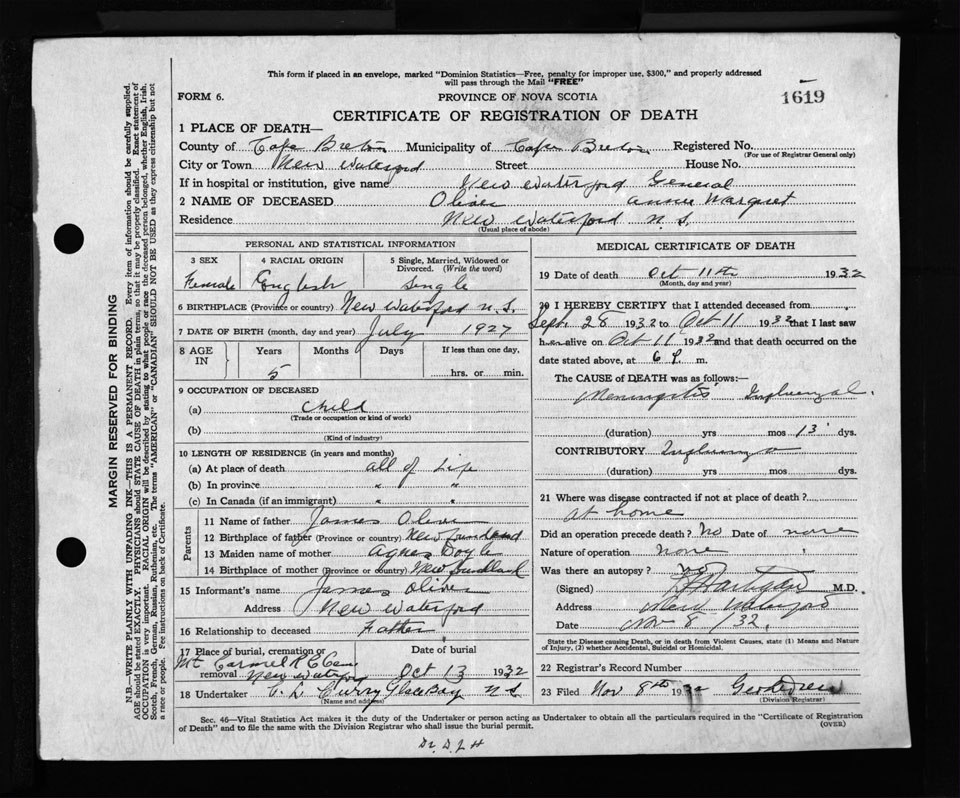 This form if placed in an envelope, marked "Dominion Statistics—Free, penalty for improper use, $300," and properly addressed
will pass through the Mail "FREE"
FORM 6. PROVINCE OF NOVA SCOTIA 1619
CERTIFICATE OF REGISTRATION OF DEATH
1 PLACE OF DEATH—
County of Cape Breton Municipality of Cape Breton Registered No.
(For use of Registrar General only)
City or Town New Waterford Street House No.
If in hospital or institution, give name New Waterford General
2 NAME OF DECEASED Oliver Annie Margret
Residence New Waterford N.S.
(Usual place of abode)
PERSONAL AND STATISTICAL INFORMATION
3 SEX 4 RACIAL ORIGIN 5 Single, Married, Widowed or
Divorced. (Write the word)
Female English Single
6 BIRTHPLACE (Province or country) New Waterford N.S.
7 DATE OF BIRTH (month, day and year) July 1927
8 AGE IN Years Months Days If less than one day,
5 hrs. or min.
9 OCCUPATION OF DECEASED
(a) Child
(Trade or occupation or kind of work)
(b)
(Kind of industry)
10 LENGTH OF RESIDENCE (in years and months)
(a) At place of death all of life
(b) In province " "
(c) In Canada (if an immigrant) " "
Parents
11 Name of father James Oliver
12 Birthplace of father (Province or country) Newfoundland
13 Maiden name of mother Agnes Doyle
14 Birthplace of mother (Province or country) Newfoundland
15 Informant's name James Oliver
Address New Waterford
16 Relationship to deceased Father
17 Place of burial, cremation or Date of burial
Mt Carmel R C Cem
removal New Waterford Oct 13 1932
18 Undertaker Curry Glace Bay N S
(Name and address)
MEDICAL CERTIFICATE OF DEATH
19 Date of death Oct 11th 1932
(Month, day and year)
20 I HEREBY CERTIFY that I attended deceased from
Sept. 28 1932 to Oct 11 1932 that I last saw
her alive on Oct 11 1932 and that death occurred on the
date stated above, at 6 P. m.
The CAUSE OF DEATH was as follows:
Meningitis Influenzal.
(duration) yrs mos 13 dys.
CONTRIBUTORY Influenza
(duration) yrs. mos. dys.
21 Where was disease contracted if not at place of death?
at home
Did an operation precede death? No Date of none
Nature of operation none
Was there an autopsy? no
(Signed) M.D.
Address New Waterford
Date Nov 8 / 32.
State the Disease causing Death, or in death from Violent Causes, state (1) Means and Nature
of Injury, (2) whether Accidental, Suicidal or Homicidal.
22 Registrar's Record Number
23 Filed Nov 8th 1932
(Division Registrar)
Sec. 46—Vital Statistics Act makes it the duty of the Undertaker or person acting as Undertaker to obtain all the particulars required in the "Certificate of Registration
of Death" and to file the same with the Division Registrar who shall issue the burial permit. (OVER)
MARGIN RESERVED FOR BINDING
N.B.—WRITE PLAINLY WITH UNFADING INK—THIS IS A PERMANENT RECORD. Every item of information should be carefully supplied.
AGE should be stated EXACTLY. PHYSICIANS should STATE CAUSE OF DEATH in plain terms, so that it may be properly classified. Exact statement of
OCCUPATION is very important. RACIAL ORIGIN will be described by stating to what people or race the deceased person belonged, whether English, Irish,
Scotch, French, German, Russian, Ruthenian, etc. The terms "AMERICAN" or "CANADIAN" SHOULD NOT BE USED as they express citizenship but not
a race or people. See instructions on back of Certificate.